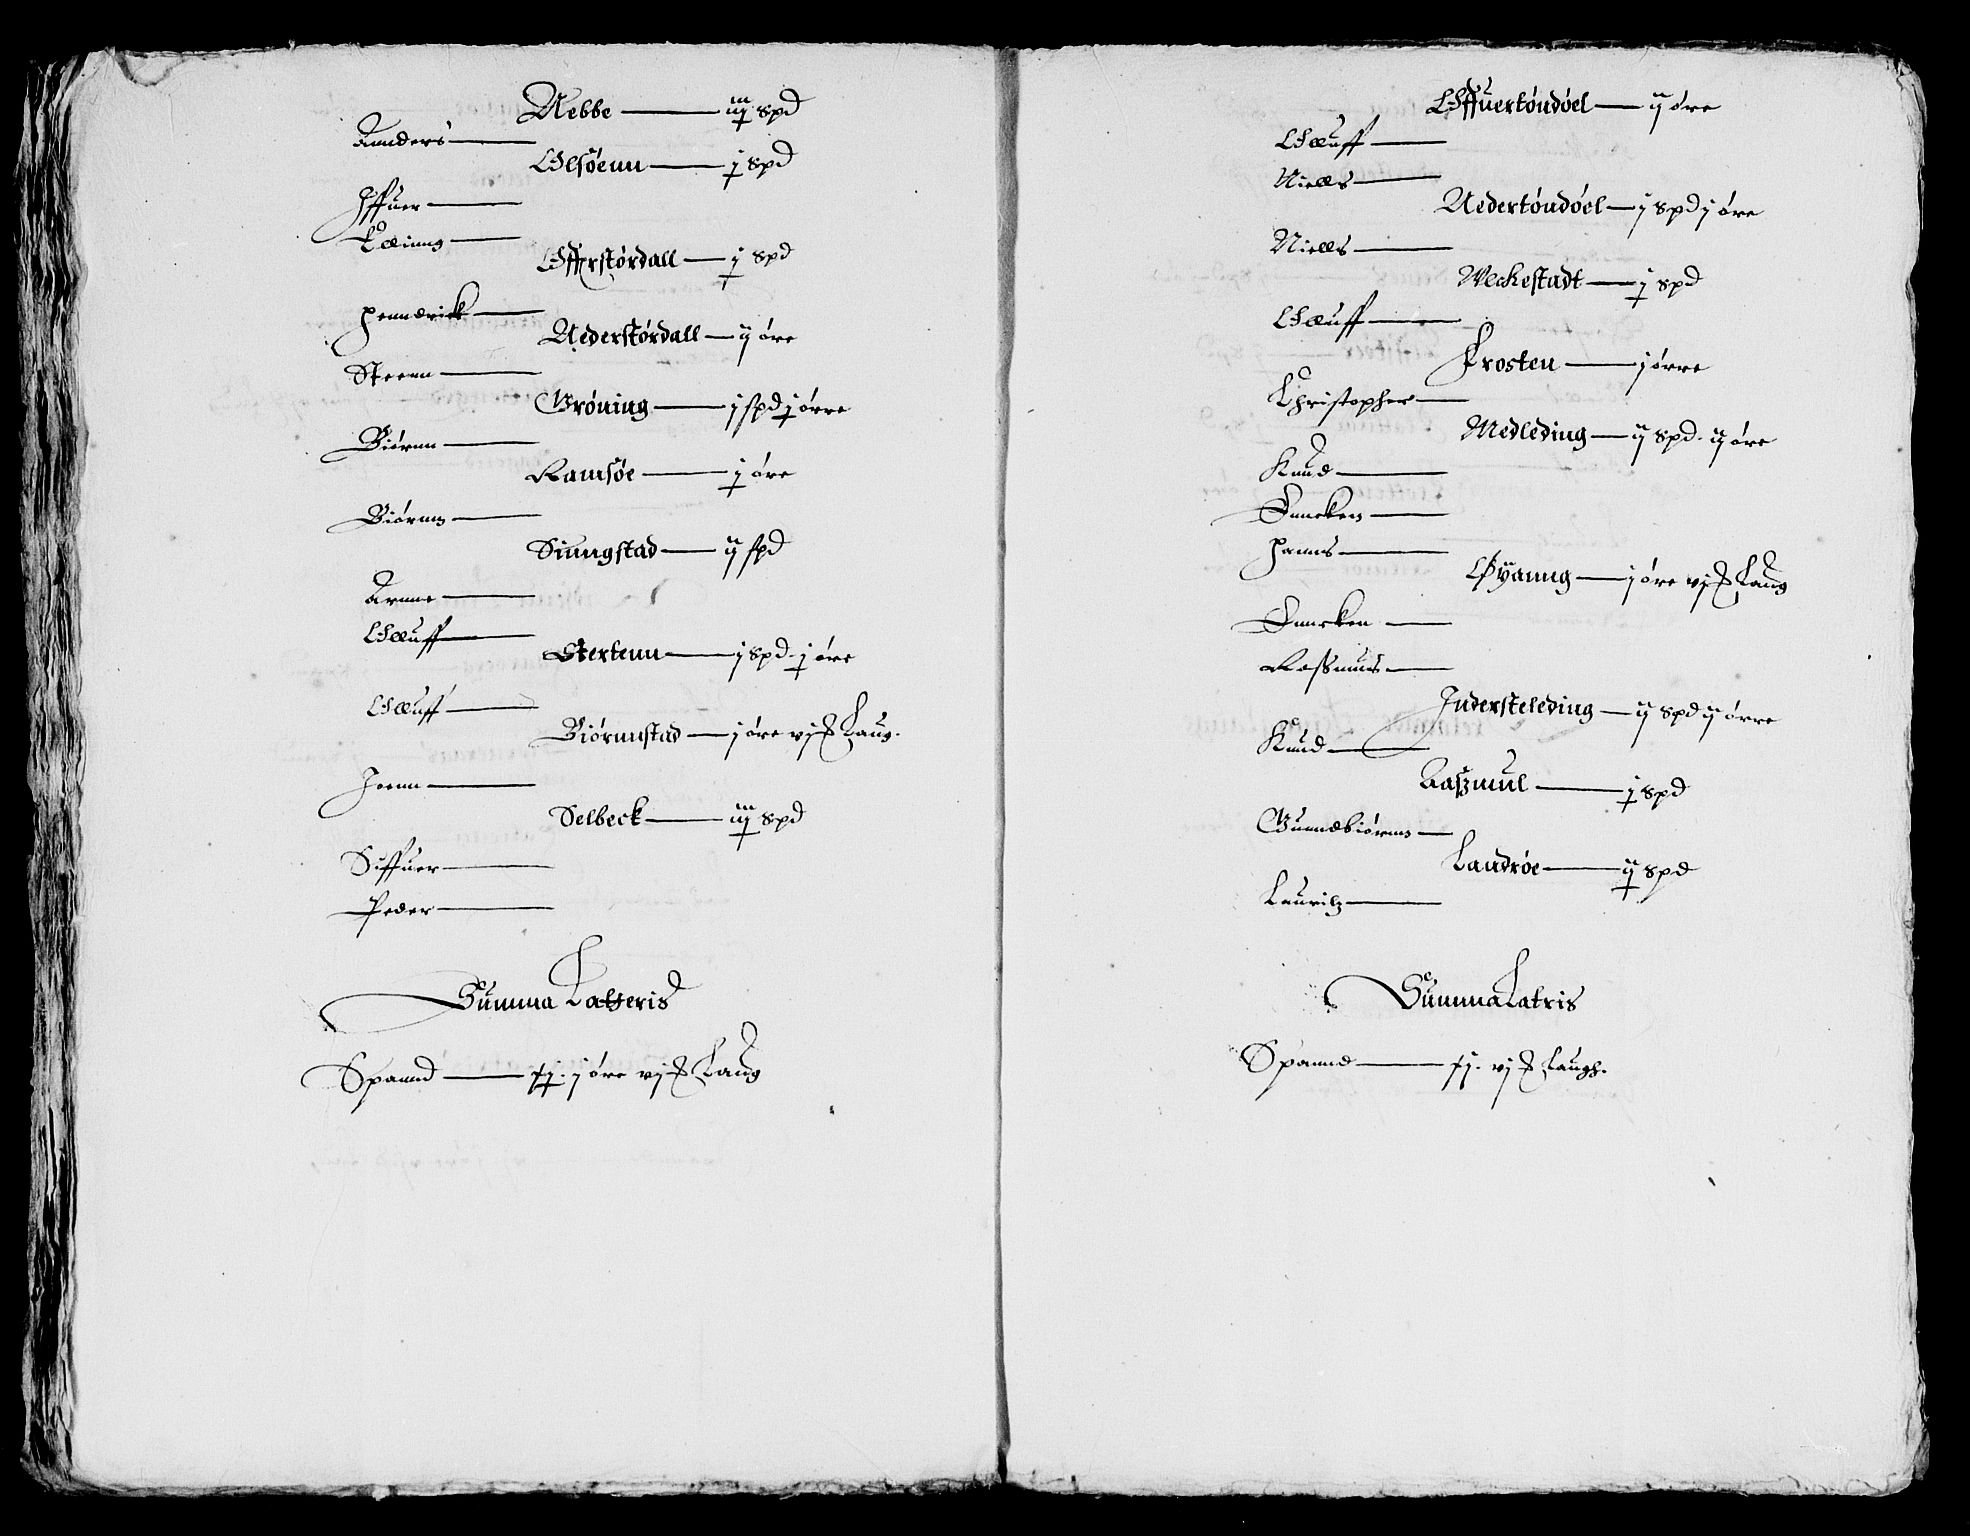 Nebbe — iiij spd
Anders —
Olsöenn — j spd
Iffuer —
Elling —
Offrstördall — j spd
Henndrick —
Nederstördall — ij öre
Steenn —
Gröning — j spd j örre
Biörnn —
Ramsöe — j öre
Biörnn —
Siungstad — ij spd
Arnne —
Oluff —
Stertenn — j spd. j öre
Oluff —
Biörnnstad — j öre vjß Laug.
Joenn —
Selbeck — iiij spd
Siffuer —
Peder —
Summa Latteris
Spannd — j öre vjß Laug
Offuertöndöel — ij öre
Oluff —
Niells —
Nedertöndöel — j spd j öre
Niells —
Weckestadt — j spd
Oluff —
Krosten — j örre
Christopher —
Medleding — ij spd. ij öre
Knud —
Enncken —
Hanns —
Øyanng — j öre vjß Laug
Enncken —
Rasmus —
Indersteleding — ij spd ij örre
Knud —
Aaszmul — j spd
Gunnebiörnn —
Landröe — ij spd
Lauritz —
Summa Latris
Spannd — xj. vjß Laugh.